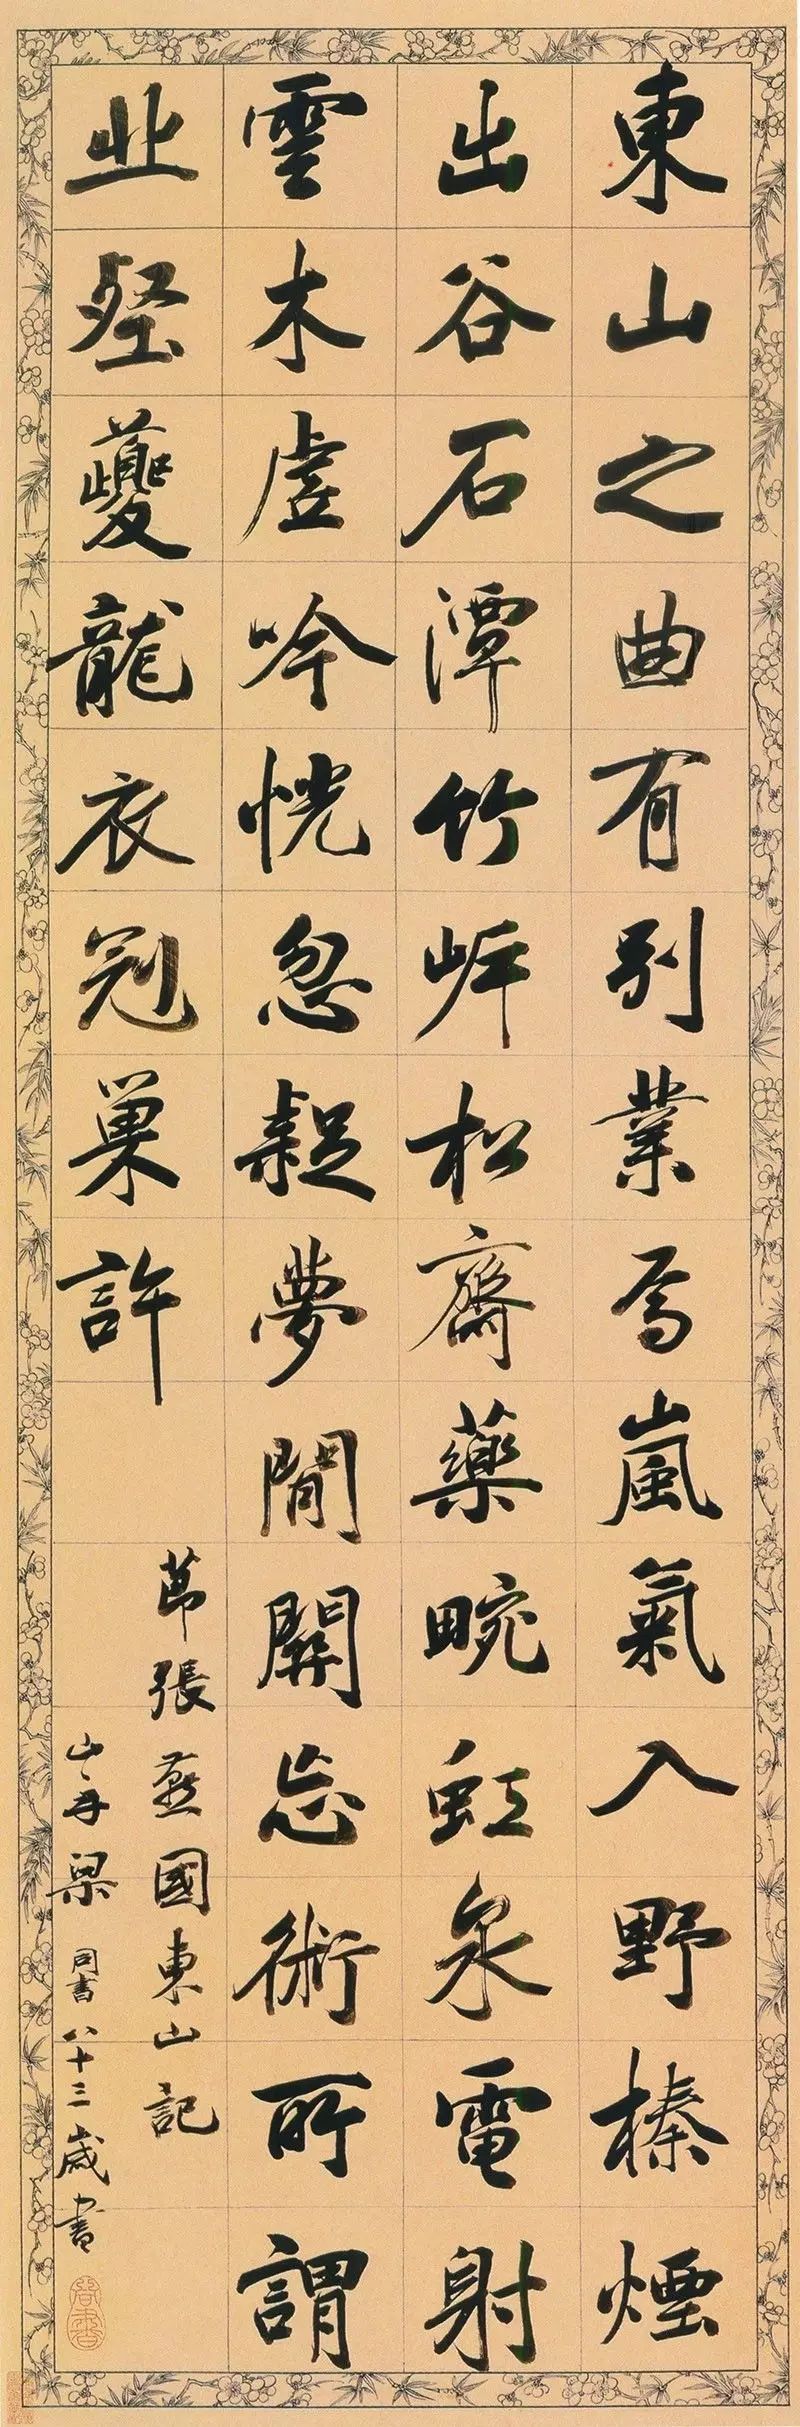 東山之曲有別業焉嵐氣入野榛煙
出谷石潭竹岸松齋藥畹虹泉電射
雲木虛吟恍忽疑夢閒關忘術所謂
丘壑夔龍衣冠巢許
節張燕國東山記
山舟梁同書八十三歲書